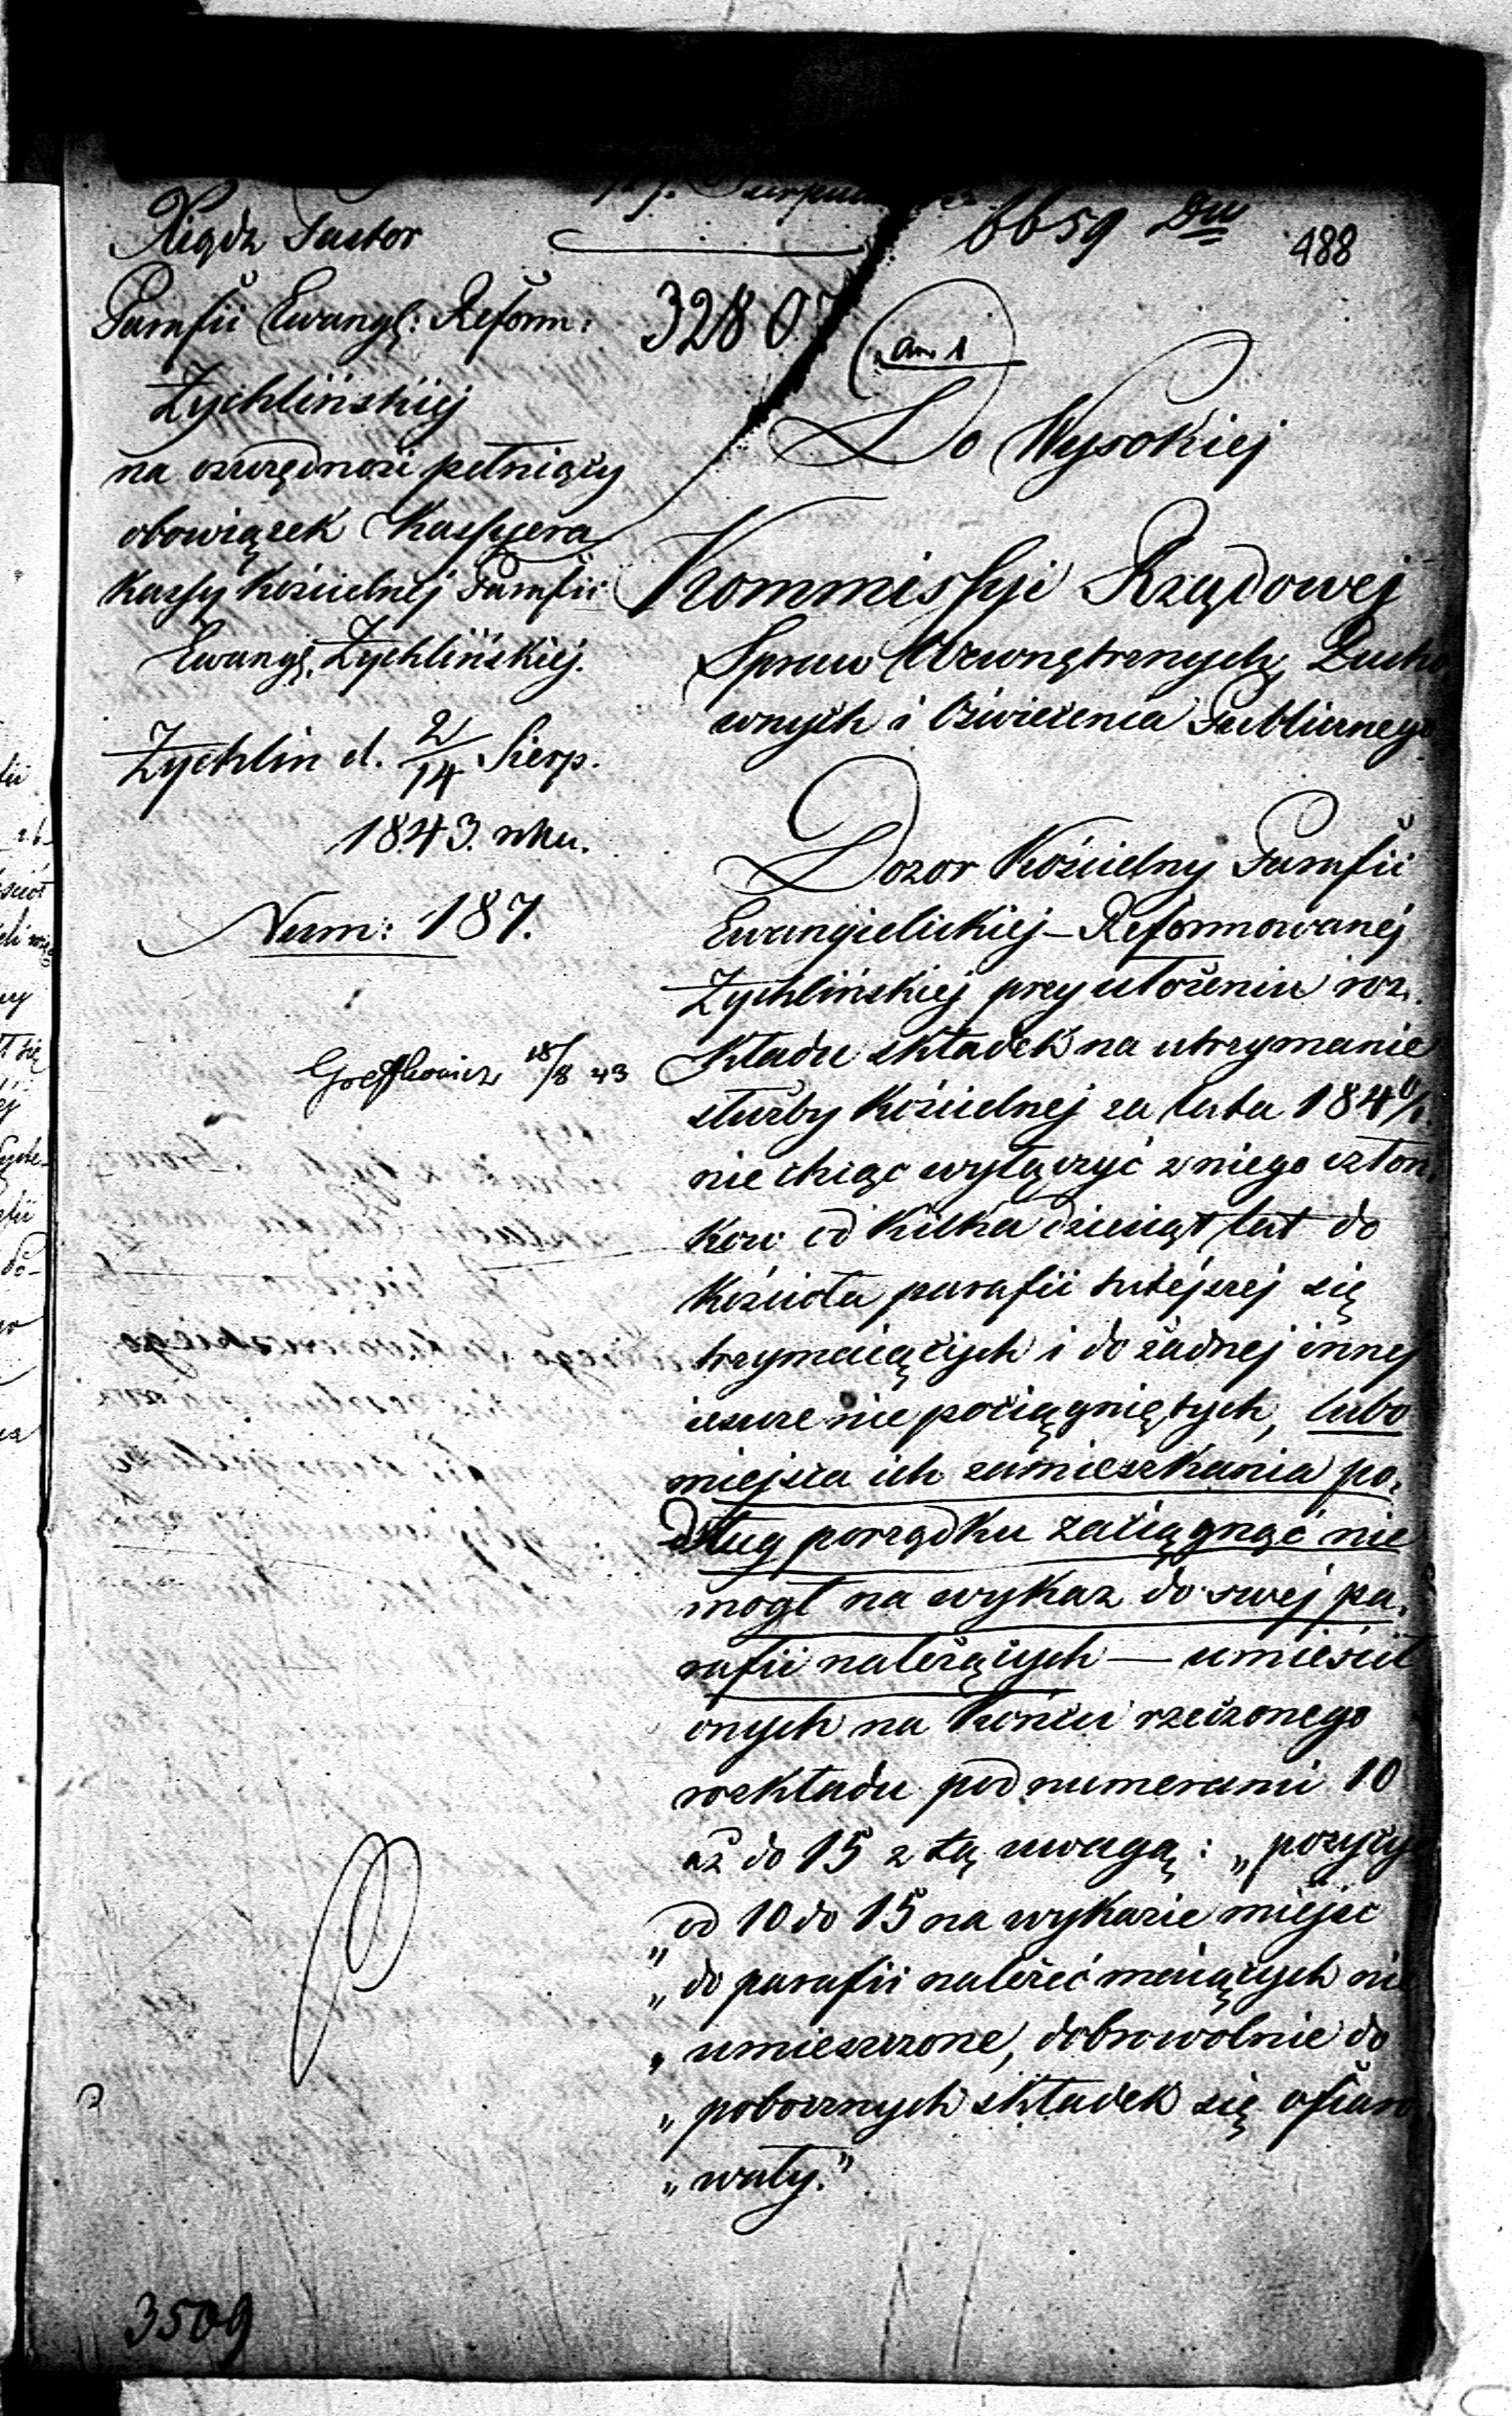 6659 Dw
488
Xiądz Pastor
Parafii Ewangl: Reform:
32807
an. 1
Żychlińskiej
na oszczędność pełniący
obowiązek Kassyera
Kassy Kościelnej Parafii
Ewangl. Żychlińskiej.
Żychlin d. 2/14 Sierp.
1843. roku.
Num: 187.
18/8 43
Do Wysokiej
Kommissyi Rządowej
Spraw Wewnętrznych, Ducho
wnych i Oświecenia Publicznego
Dozor Kościelny Parafii
Ewangielickiej-Reformowanej
Żychlińskiej przy ułożeniu roz.
kładu składek na utrzymanie
służby Kościelnej za lata 184 0/1.
nie chcąc wyłączyć z niego człon.
kow od kilka dziesiąt lat do
Kościoła parafii tutejszej się
trzymaiących i do żadnej innej
ieszcze nie pociągniętych, lubo
miejsca ich zamieszkania po.
dług porządku zaciągnąć nie
mogł na wykaz do swej pa.
rafii należących — umieścił
onych na końcu rzeczonego
rozkładu pod numerami 10
aż do 15 z tą uwagą: „pozycye
„od 10 do 15 na wykazie miejsc
„do parafii należeć maiących nie
„umieszczone, dobrowolnie do
„pobocznych składek się ofiaro.
„wały."
3509